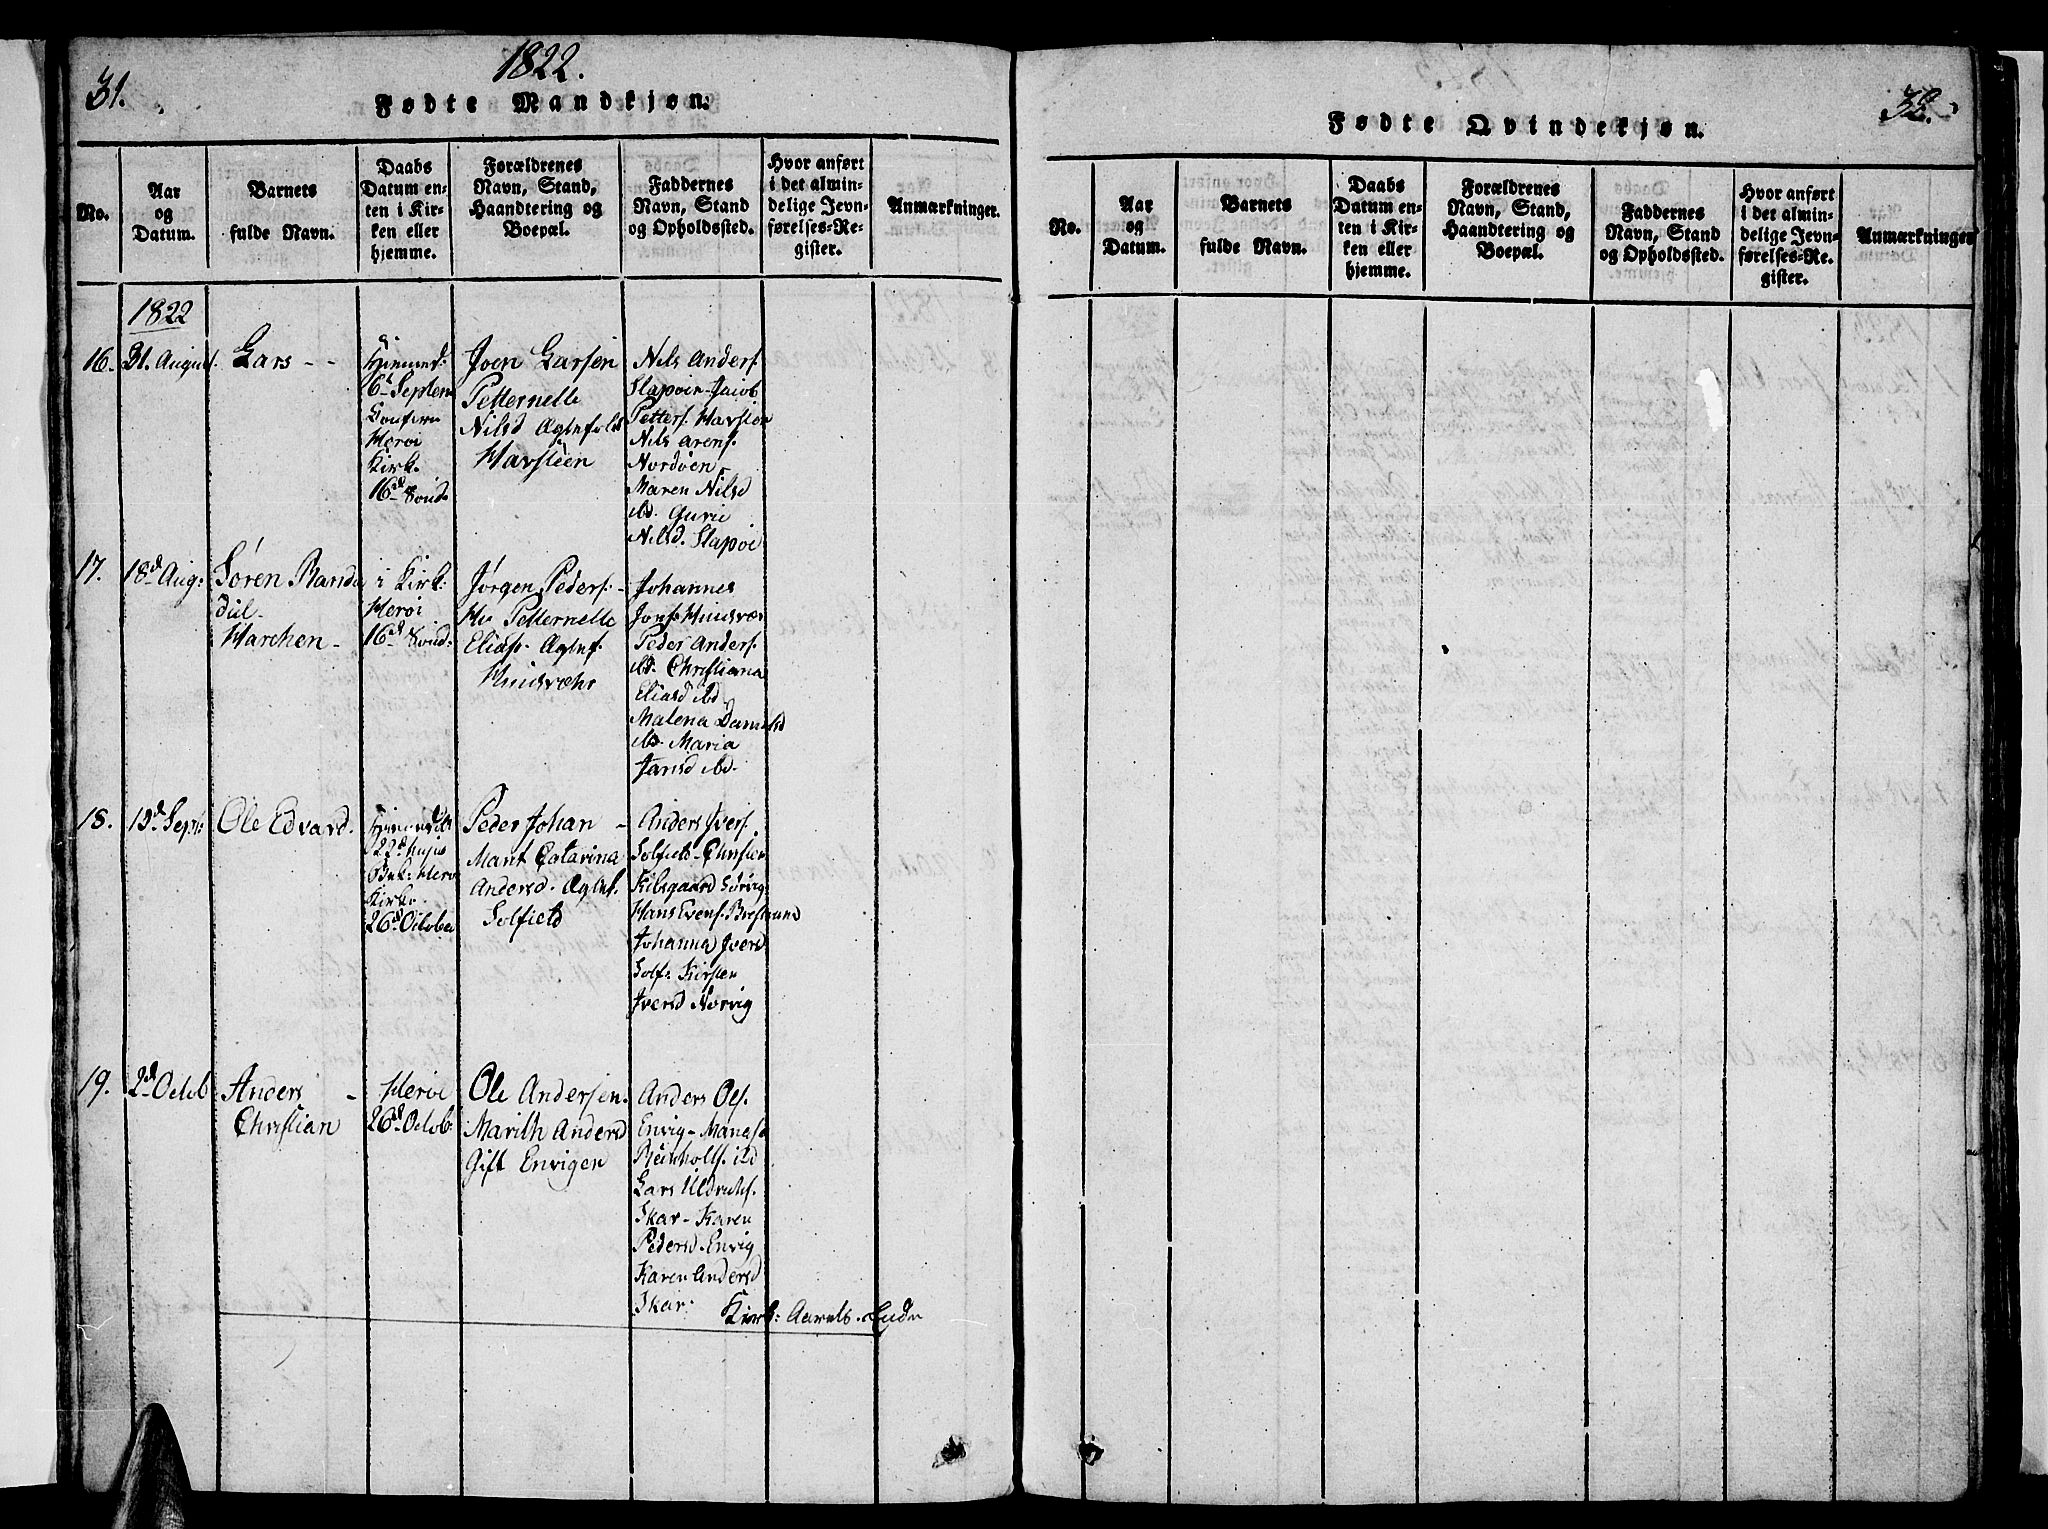 31.
1822.
Fødte Mandkjøn.
No.
Aar
og
Datum.
Barnets
fulde Navn.
Daabs
Datum en-
ten i Kir-
ken eller
hjemme.
Forældrenes
Navn, Stand,
Haandtering og
Boepæl.
Faddernes
Navn, Stand
og Opholdssted.
Hvor anført
i det almin-
delige Jevn-
førelses-Re-
gister.
Anmærkninger.
1822
16.
31. August.
Lars - -
6 Septem
Herøi
Kirk.
16d Sønd
Joen Larsen
Petternelle
Nilsd
Havsteen
Nils Anders.
Slapøie - Jacob
Petters. Havsteen
Nils Arens.
Nordøen
Maren Nilsd
ibd. Gurie
Nilsd. Slapøe
17.
18d Aug:
Søren Randu
dul.
Marchen -
i Kirk:
Herøi
16d Sønd:
Jørgen Peders. -
Petternelle
Elids. Agtef.
Husvær
Johannes
Jons Husvær
Peder Anders.
ibd. Christiana
Eliasd ibd
Malena Daniels
ibd. Maria
Jansd ibd.
18.
19d Sept:
Ole Edvard.
22d
Herø
Kirke
26d October
Peder Johan -
Marit Catarina
Andersd. Agtef.
Solfield
Anders Ivers.
Solfield - Christen
Kilsgaard Sørvig
Hans Evens. Brasund
Johanna Iversd
Solf: Kirsten
Iversd Norvig
19.
2d Octob
Anders -
Christian
Herøe
26d Octob.
Ole Andersen.
Marith Andersd
Gift Envigen
Anders Ols.
Envig - Manasse
Reinholts. ibd
Lars Uldriks.
Skar - Karen
Pedersd. Envig
Karen Andersd
Skar:
Kirk: Aarets Ende
32.
Fødte Qvindekjøn.
No.
Aar
og
Datum.
Barnets
fulde Navn.
Daabs
Datum en-
ten i Kir-
ken eller
hjemme.
Forældrenes
Navn, Stand,
Haandtering og
Boepæl.
Faddernes
Navn, Stand
og Opholdssted.
Hvor anført
i det almin-
delige Jevn-
førelses-Re-
gister.
Anmærkninger